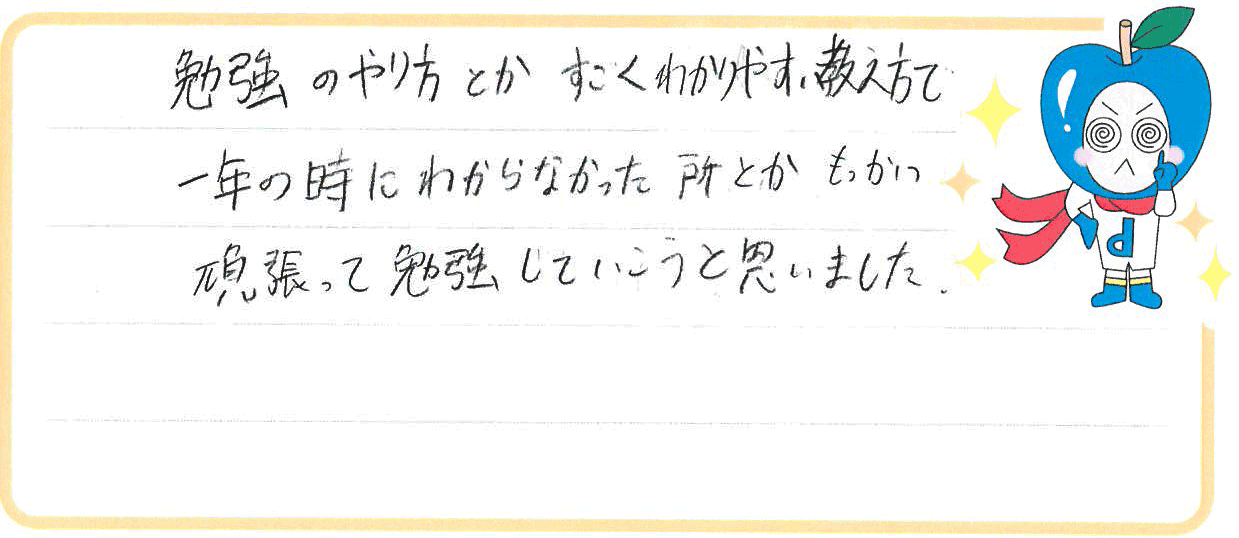 勉強のやり方とか すごくわかりやすい教え方で
一年の時にわからなかった所とか もっかいっ
頑張って勉強していこうと思いました.
d